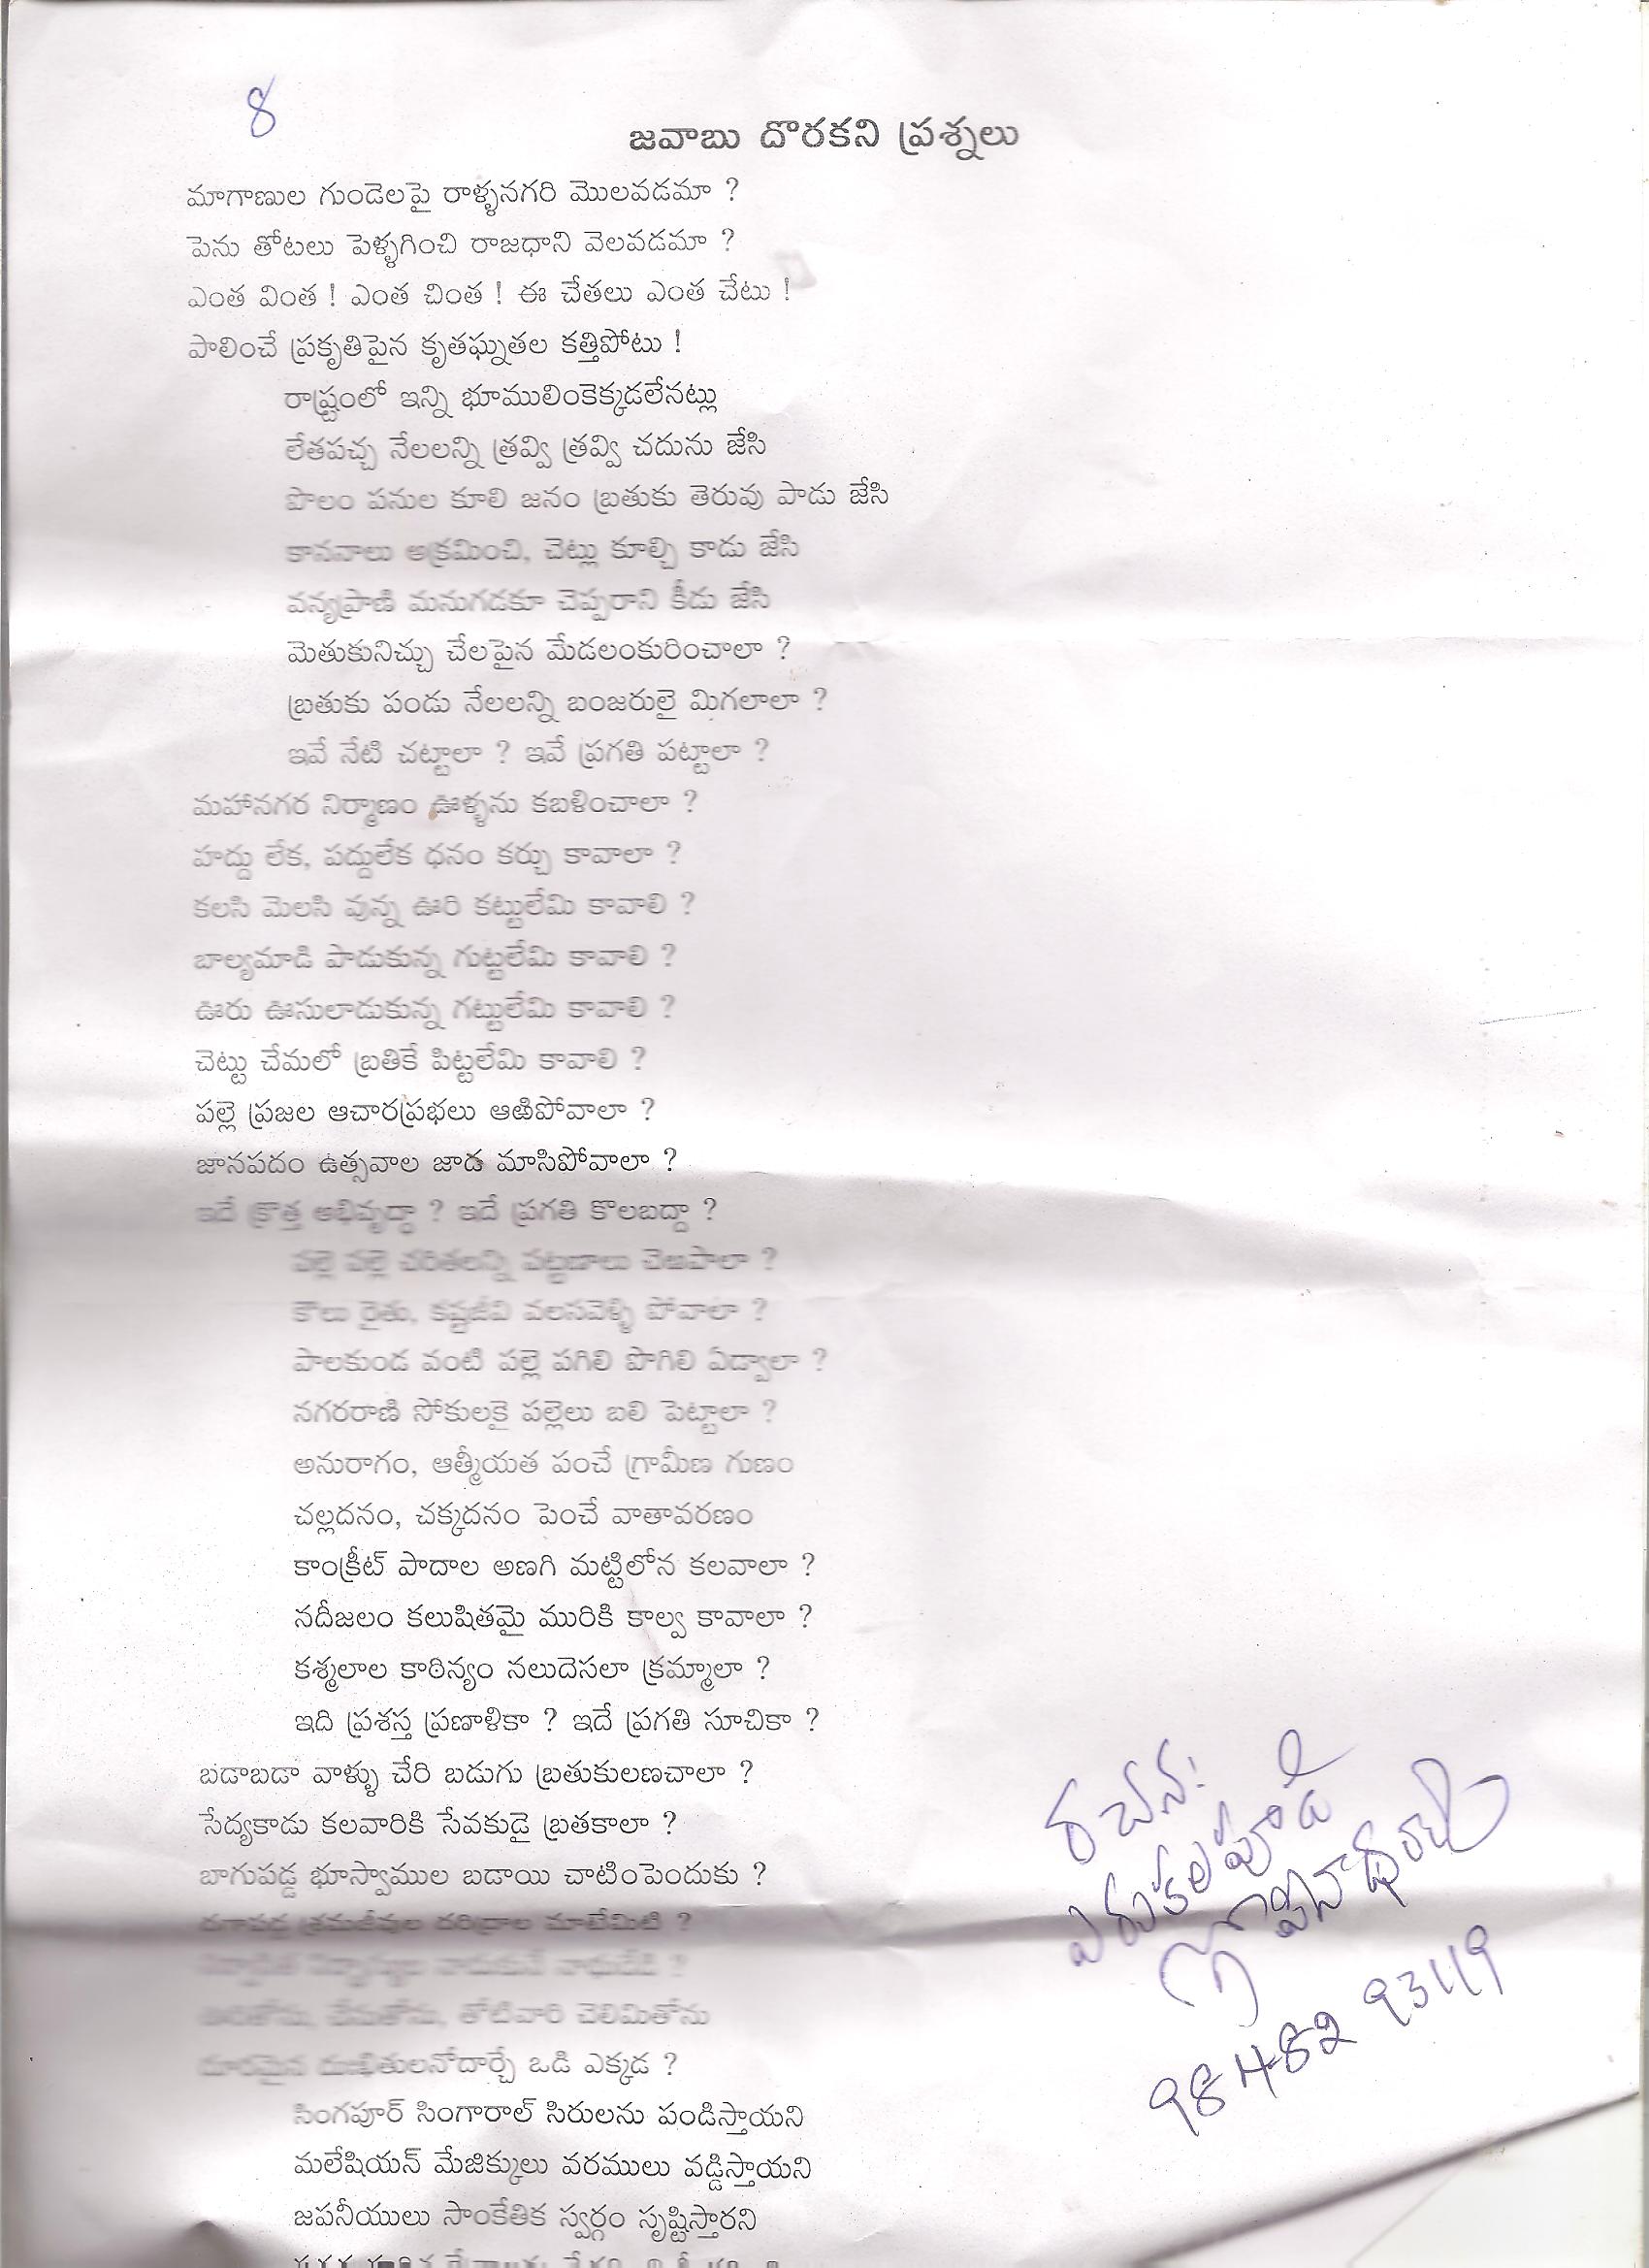 8
జవాబు దొరకని ప్రశ్నలు
మాగాణుల గుండెలపై రాళ్ళనగరి మొలవడమా ?
పెను తోటలు పెళ్ళగించి రాజధాని వెలవడమా ?
ఎంత వింత ! ఎంత చింత ! ఈ చేతలు ఎంత చేటు !
పాలించే ప్రకృతిపైన కృతఘ్నతల కత్తిపోటు !
రాష్ట్రంలో ఇన్ని భూములింకెక్కడలేనట్లు
లేతపచ్చ నేలలన్ని త్రవ్వి త్రవ్వి చదును జేసి
పొలం పనుల కూలి జనం బ్రతుకు తెరువు పాడు జేసి
కాననాలు అక్రమించి, చెట్లు కూల్చి కాడు జేసి
వన్యప్రాణి మనుగడకూ చెప్పరాని కీడు జేసి
మెతుకునిచ్చు చేలపైన మేడలంకురించాలా ?
బ్రతుకు పండు నేలలన్ని బంజరులై మిగలాలా ?
ఇవే నేటి చట్టాలా ? ఇవే ప్రగతి పట్టాలా ?
మహానగర నిర్మాణం ఊళ్ళను కబళించాలా ?
హద్దు లేక, పద్దులేక ధనం కర్చు కావాలా ?
కలసి మెలసి వున్న ఊరి కట్టులేమి కావాలి ?
బాల్యమాడి పాడుకున్న గుట్టలేమి కావాలి ?
ఊరు ఊసులాడుకున్న గట్టులేమి కావాలి ?
చెట్టు చేమలో బ్రతికే పిట్టలేమి కావాలి ?
పల్లె ప్రజల ఆచారప్రభలు ఆఱిపోవాలా ?
జానపదం ఉత్సవాల జాడ మాసిపోవాలా ?
ఇదే క్రొత్త అభివృద్ధా ? ఇదే ప్రగతి కొలబద్దా ?
పల్లె పల్లె చరితలన్ని పట్టణాలు చెఱపాలా ?
కౌలు రైతు, కష్టజీవి వలసవెళ్ళి పోవాలా ?
పాలకుండ వంటి పల్లె పగిలి పొగిలి ఏడ్వాలా ?
నగరరాణి సోకులకై పల్లెలు బలి పెట్టాలా ?
అనురాగం, ఆత్మీయత పంచే గ్రామీణ గుణం
చల్లదనం, చక్కదనం పెంచే వాతావరణం
కాంక్రీట్ పాదాల అణగి మట్టిలోన కలవాలా ?
నదీజలం కలుషితమై మురికి కాల్వ కావాలా ?
కశ్మలాల కాఠిన్యం నలుదెసలా క్రమ్మాలా ?
ఇది ప్రశస్త ప్రణాళికా ? ఇదే ప్రగతి సూచికా ?
బడాబడా వాళ్ళు చేరి బడుగు బ్రతుకులణచాలా ?
సేద్యకాడు కలవారికి సేవకుడై బ్రతకాలా ?
బాగుపడ్డ భూస్వాముల బడాయి చాటింపెందుకు ?
దగాపడ్డ శ్రమజీవుల దరిద్రాల మాటేమిటి ?
తోటివారి చెలిమితోను
దూరమైన దుఃఖితులనోదార్చే ఒడి ఎక్కడ ?
సింగపూర్ సింగారాల్ సిరులను పండిస్తాయని
మలేషియన్ మేజిక్కులు వరములు వడ్డిస్తాయని
జపనీయులు సాంకేతిక స్వర్గం సృష్టిస్తారని
రచన:
ఎరుకలపూడి
గోపీనాథరావు
98482 93119